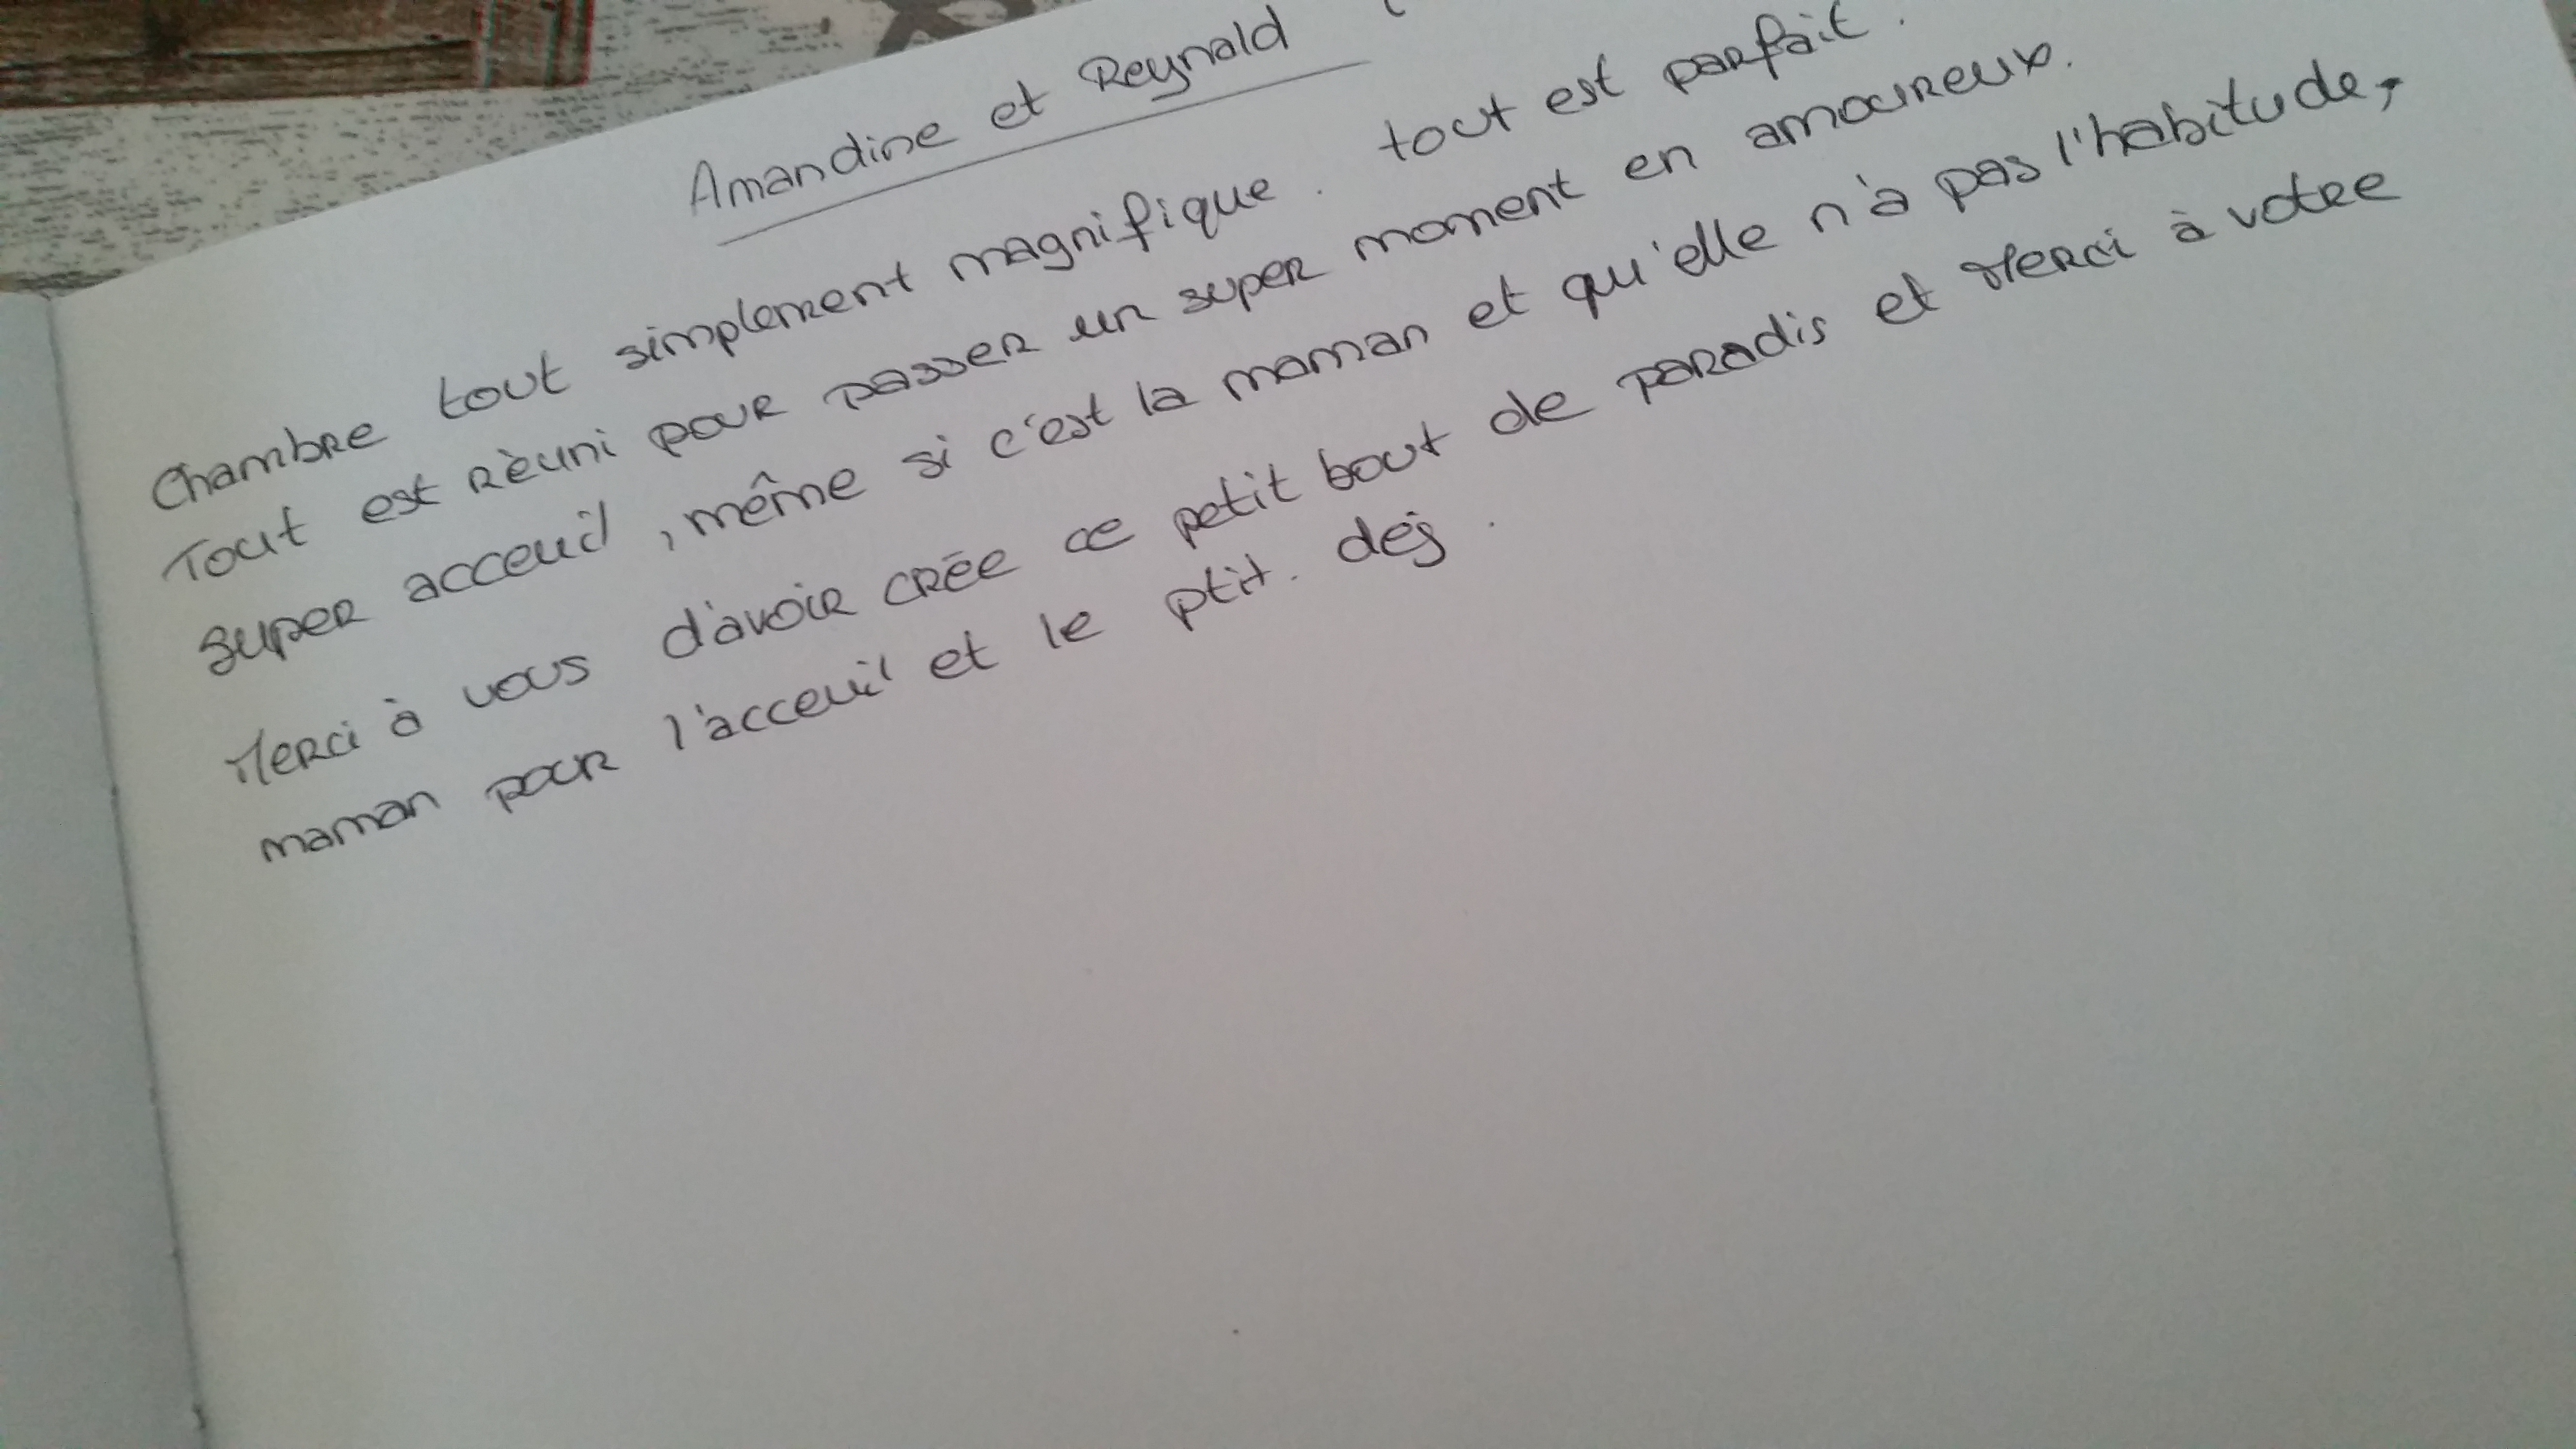 Amandine et Reynald
Chambre tout simplement magnifique. tout est parfait.
Tout est réuni pour passer un super moment en amoureux.
super acceuil, même si c'est la maman et qu'elle n'a pas l'habitude,
Merci à vous d'avoir crée ce petit bout de paradis et Merci à votre
maman pour l'acceuil et le ptit. dej.